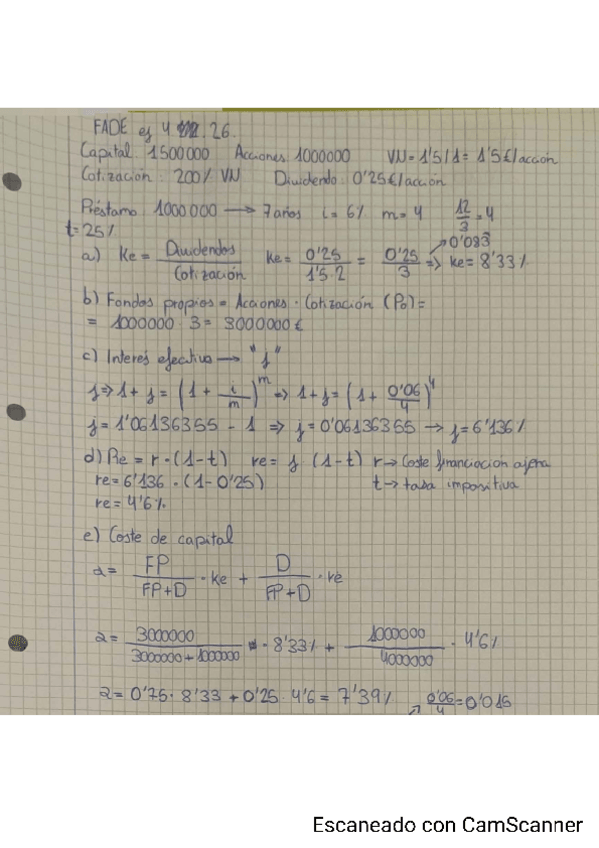 FADE ej 4 26.
Capital 1500000 Acciones 1000000 VN = 1'5/1 = 1'5€/acción
Cotización: 200% VN Dividendo: 0'25€/acción
Préstamo 1000000 → 7 años i = 6% m = 4 12/3 = 4
t = 25%
a) Ke = Dividendos/Cotización Ke = 0'25/1'5·2 = 0'25/3 ⇒ Ke = 8'33%
0'083
b) Fondos propios = Acciones · Cotización (Po) =
= 1000000 · 3 = 3000000€
c) Interes efectivo → "j"
j ⇒ 1 + j = (1 + i/m)^m ⇒ 1 + j = (1 + 0'06/4)^4
j = 1'06136355 - 1 ⇒ j = 0'06136355 → j = 6'136%
d) Re = r · (1-t) re = j (1-t) r → Coste financiación ajena
re = 6'136 · (1-0'25) t → tasa impositiva
re = 4'6%
e) Coste de capital
a = FP/FP+D · Ke + D/FP+D · re
a = 3000000/3000000+1000000 · 8'33% + 1000000/4000000 · 4'6%
a = 0'75 · 8'33 + 0'25 · 4'6 = 7'39% 0'06/4 = 0'015
Escaneado con CamScanner